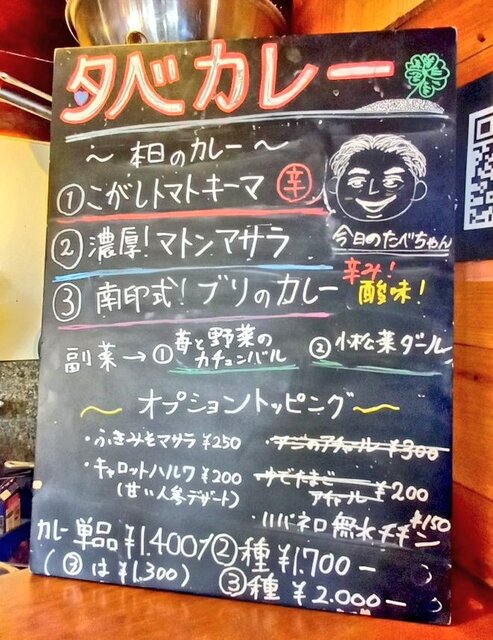 夕べカレー
〜 本日のカレー 〜
① こがしトマトキーマ 辛
② 濃厚!マトンマサラ
今日のたべちゃん
③ 南印式!ブリのカレー
辛み!
酸味!
副菜→① 苺と野菜のカチュンバル ② 小松菜ダール
〜オプショントッピング〜
・ふきみそマサラ ¥250
・アジのアチャール ¥300
・キャロットハルワ ¥200
(甘い人参デザート)
ゆでたまご
アチャール ¥200
・ハバネロ無水チキン ¥150
カレー単品 ¥1.400 / ②種 ¥1,700-
(③は ¥1,300) ③種 ¥2.000-